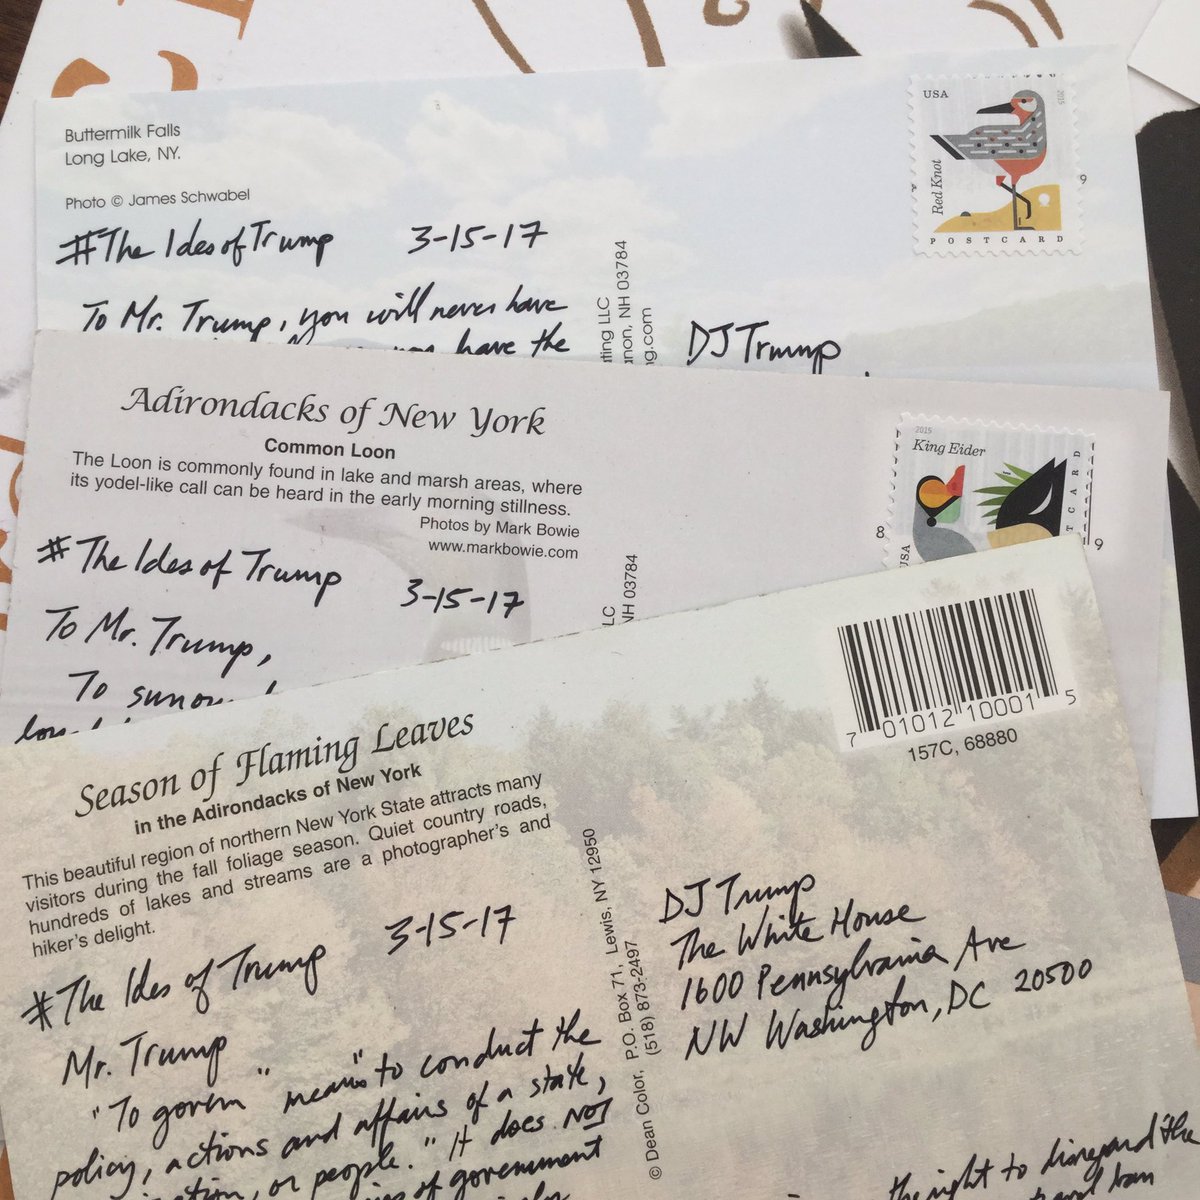 Buttermilk Falls
Long Lake, NY.
Photo © James Schwabel
#The Ides of Trump 3-15-17
To Mr. Trump, you will never have
have the
DJ Trump
USA
2015
Red Knot
POSTCARD
9
ting LLC
anon, NH 03784
ng.com
Adirondacks of New York
Common Loon
The Loon is commonly found in lake and marsh areas, where
its yodel-like call can be heard in the early morning stillness.
Photos by Mark Bowie
www.markbowie.com
#The Ides of Trump
3-15-17
To Mr. Trump,
To
2015
King Eider
USA
TCARD
8
9
LLC
NH 03784
Season of Flaming Leaves
in the Adirondacks of New York
This beautiful region of northern New York State attracts many
visitors during the fall foliage season. Quiet country roads,
hundreds of lakes and streams are a photographer's and
hiker's delight.
3-15-17
#The Ides of Trump
Mr. Trump
"To govern" means "to conduct the
policy, actions and affairs of a state,
or people." It does NOT
of government
7 01012 10001 5
157C, 68880
© Dean Color, P.O. Box 71, Lewis, NY 12950
(518) 873-2497
DJ Trump
The White House
1600 Pennsylvania Ave
NW Washington, DC 20500
the right to disregard the
ban